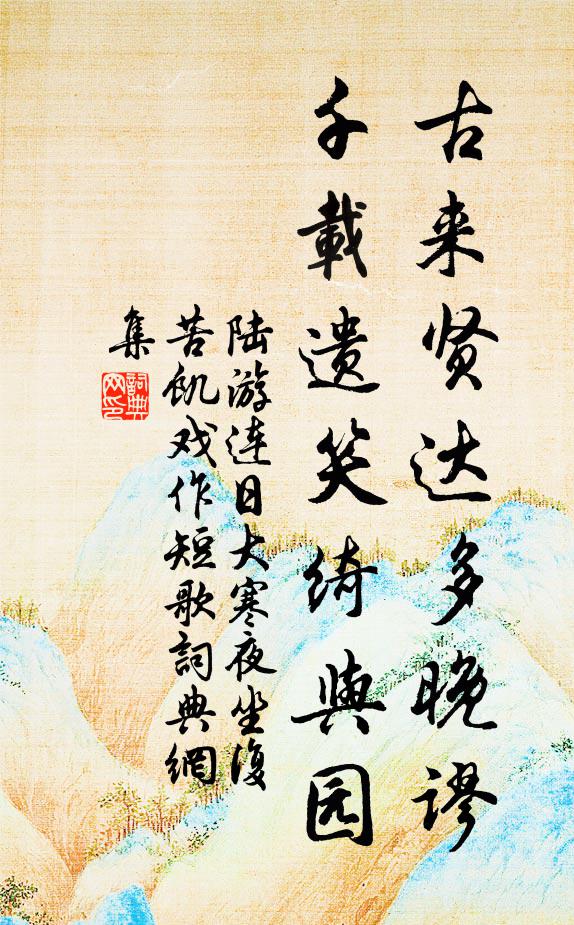 古来贤达多晚谬
千載遗笑绮與园
陆游连日大寒夜坐復
苦飢戏作短歌詞典網
集
詞典網印